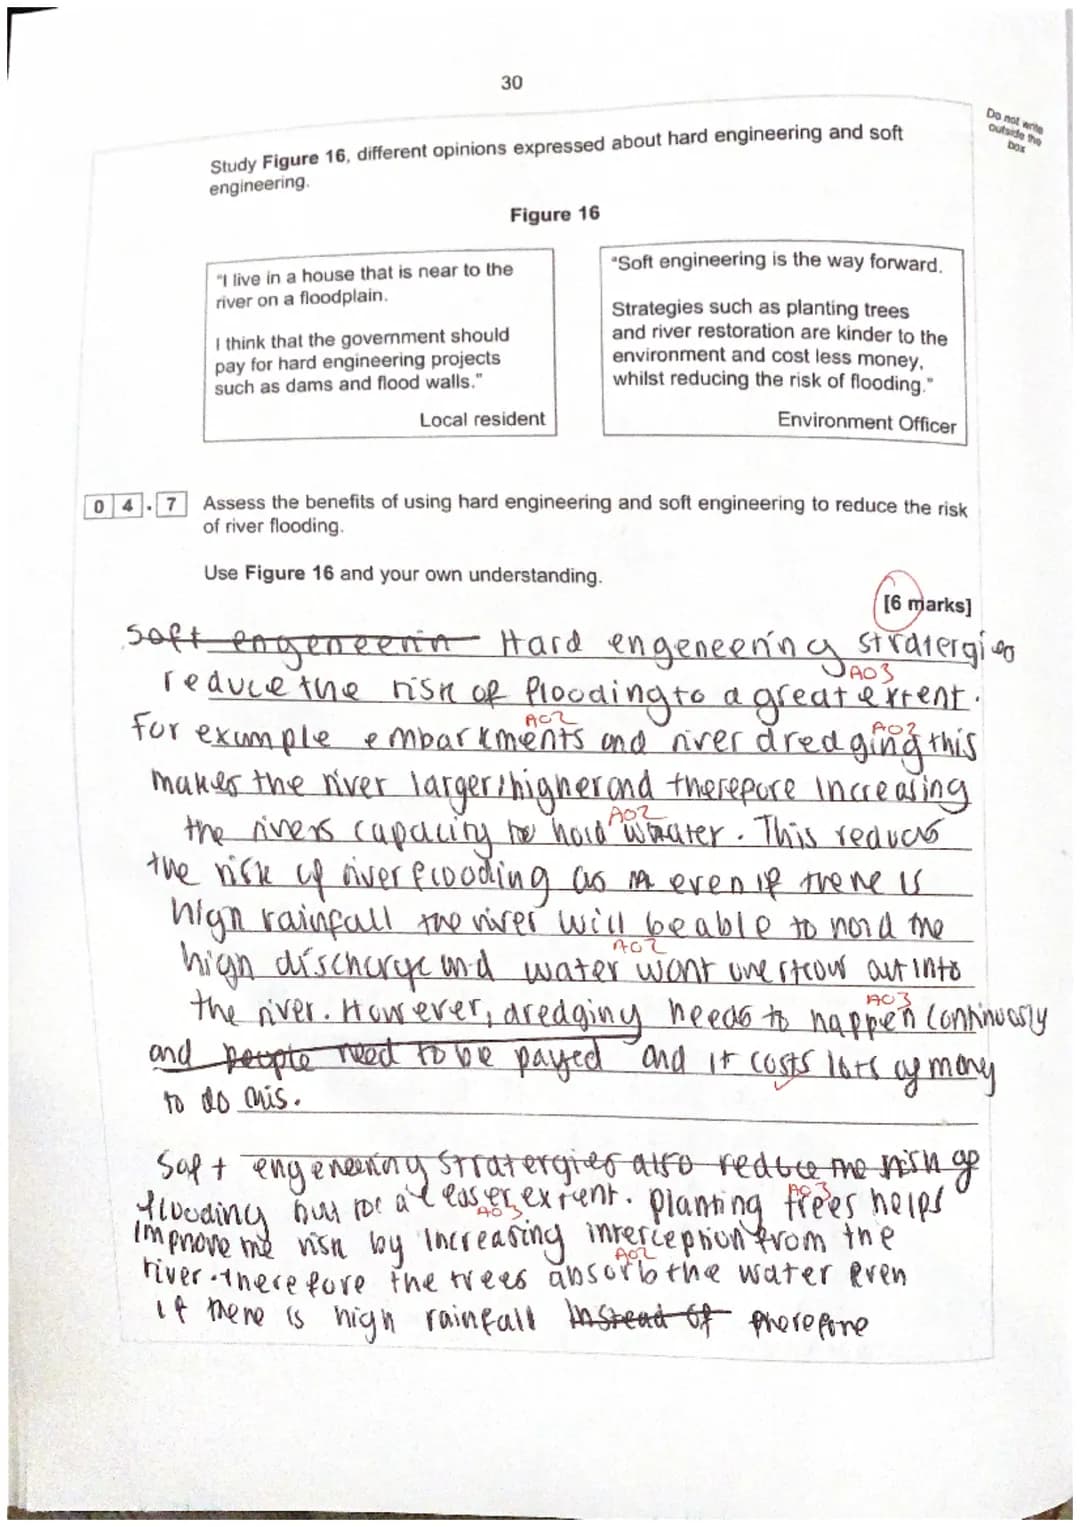 30
Do not write
outside the
box
Study Figure 16, different opinions expressed about hard engineering and soft
engineering.
Figure 16
"I live in a house that is near to the
river on a floodplain.
I think that the government should
pay for hard engineering projects
such as dams and flood walls."
Local resident
"Soft engineering is the way forward.
Strategies such as planting trees
and river restoration are kinder to the
environment and cost less money,
whilst reducing the risk of flooding."
Environment Officer
0 4 . 7 Assess the benefits of using hard engineering and soft engineering to reduce the risk
of river flooding.
Use Figure 16 and your own understanding.
[6 marks]
Soft engeneerin Hard engeneering stratergies
AO3
reduce the risk of flooding to a great extent.
AO2 AO2
For example embarkments and river dredging this
makes the river larger/higher and therefore increasing
AO2
the rivers capacity to hold water. This reduces
the risk of river flooding as even if there is
high rainfall the river will be able to hold the
AO2
high discharge and water wont overflow out into
AO3
the river. However, dredging needs to happen continuously
and people need to be payed and it costs lots of money
to do this.
Soft engeneering stratergies also reduce the risk of
AO3
flooding but to a lesser extent. planting trees helps
AO3
improve the risk by increasing interception from the
AO2
river. therefore the trees absorb the water even
if there is high rainfall instead of therefore